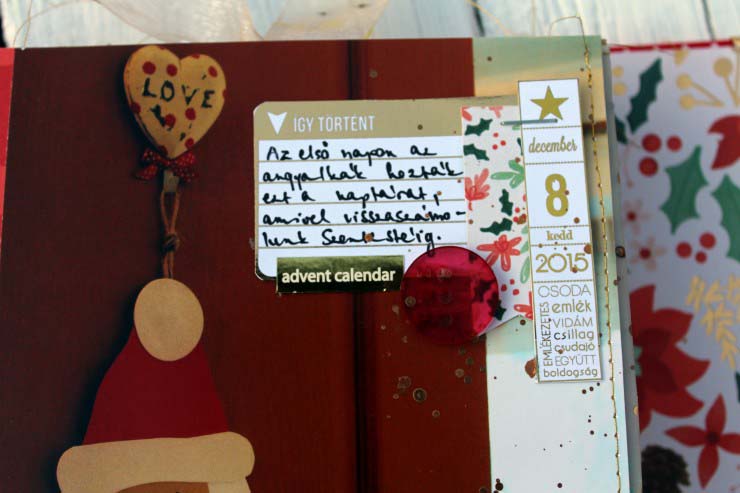 LOVE
ÍGY TÖRTÉNT
Az első napon az
angyalkák hozták
ezt a naptárat,
amivel visszaszámo-
lunk Szentestéig.
advent calendar
december
8
kedd
2015
EMLÉKEZETES
CSODA
emlék
VIDÁM
csillag
csudajó
EGYÜTT
boldogság